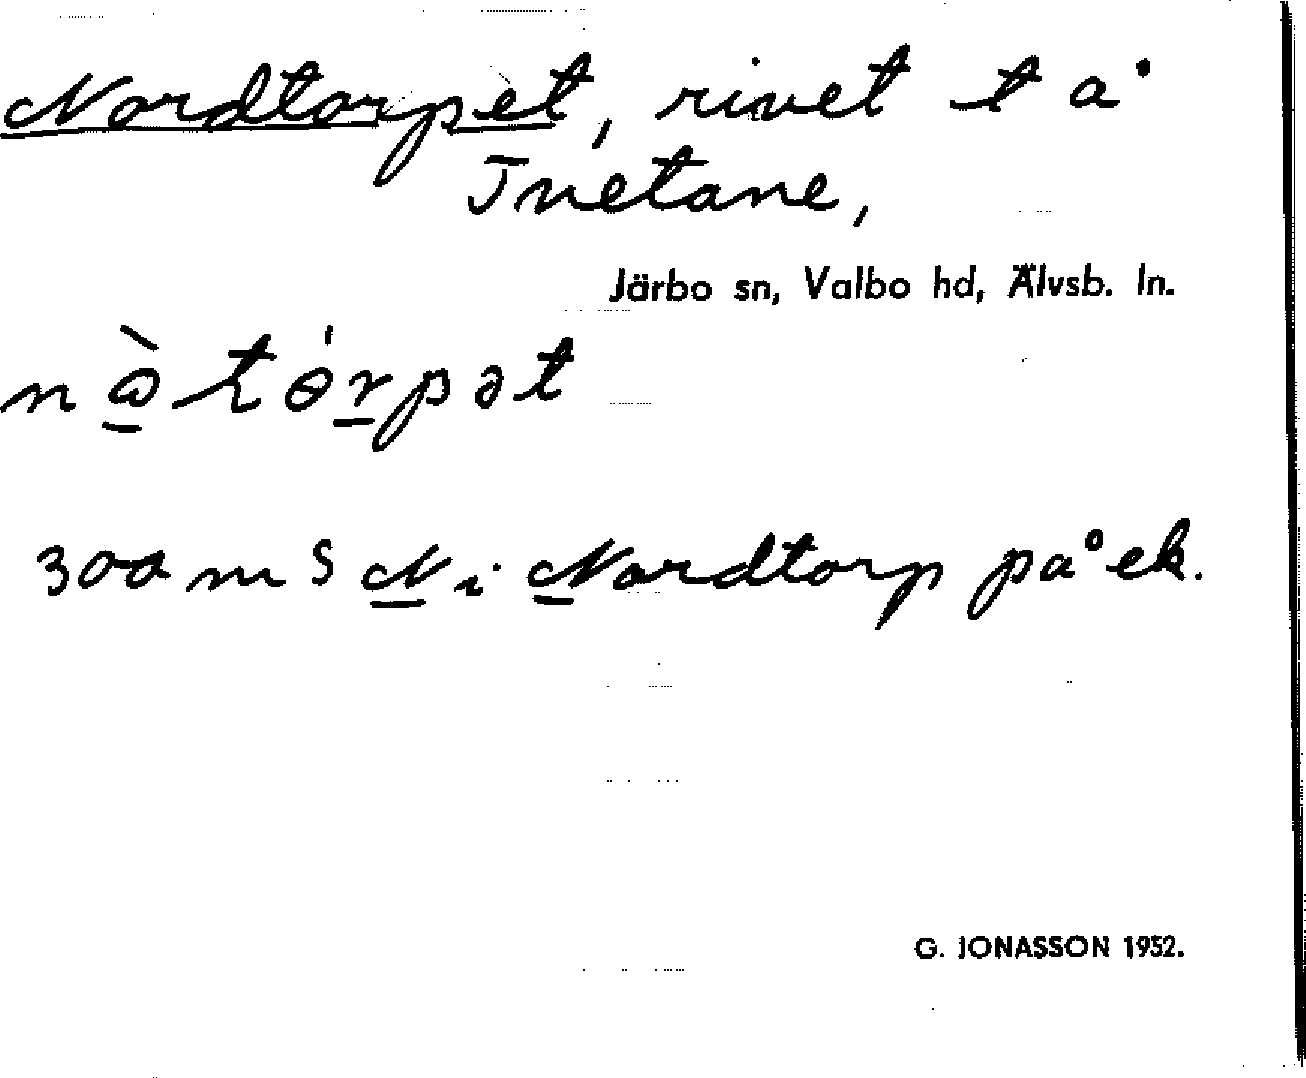 Nordtorpet, rivet t å
Tvetane,
Järbo sn, Valbo hd, Älvsb. ln.
300 m S N i Nordtorp på ek.
G. JONASSON 1952.